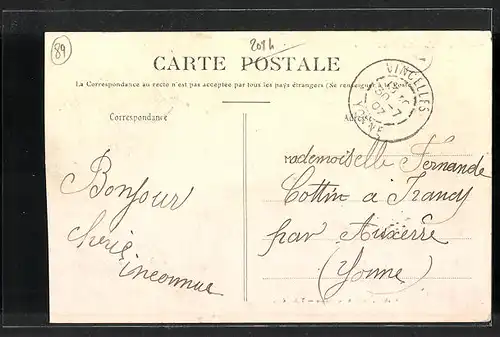 89
208 h
CARTE POSTALE
La Correspondance au recto n'est pas acceptée par tous les pays étrangers (Se renseigner à la Poste)
VINCELLES
30 -7
07
YONNE
Correspondance
Adresse
Bonjour
cherie
inconnue
Mademoiselle Fernande
Cottin a Irancy
par Auxerre
(Yonne)